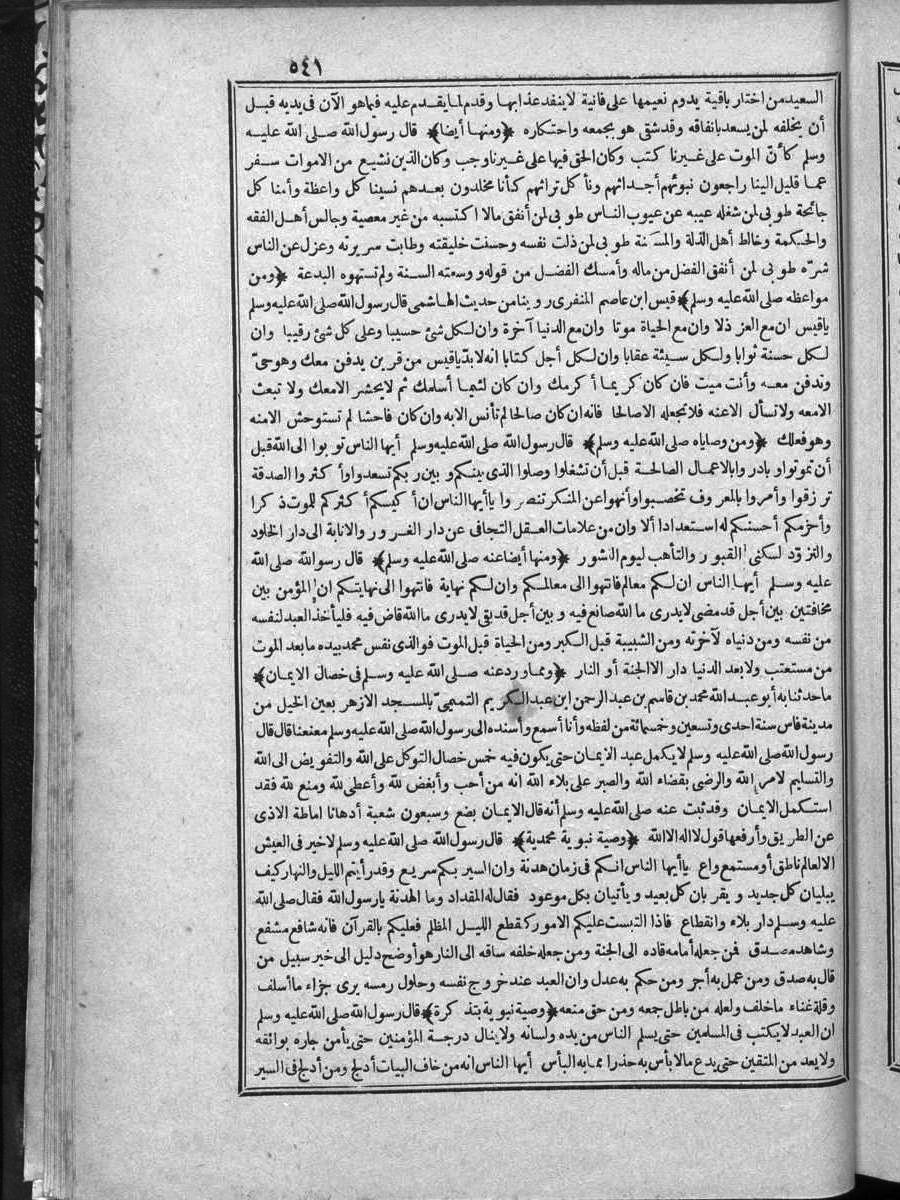 ٥٤١
السعيد من اختار باقية يدوم نعيمها على فانية لا ينفد عذابها وقدم لما يقدم عليه فيما هو الآن فى يديه قبل
أن يخلفه لمن يسعد بانفاقه وقد شقى هو بجمعه واحتكاره ﴿ومنها أيضا﴾ قال رسول الله صلى الله عليه
وسلم كأنّ الموت على غيرنا كتب وكان الحق فيها على غيرنا وجب وكان الذين نشيع من الاموات سفر
عما قليل الينا راجعون نبوئهم أجداثهم ونأكل تراثهم كأنا مخلدون بعدهم نسينا كل واعظة وأمنا كل
جائحة طوبى لمن شغله عيبه عن عيوب الناس طوبى لمن أنفق مالا اكتسبه من غير معصية وجالس أهل الفقه
والحكمة وخالط أهل الذلة والمسكنة طوبى لمن ذلت نفسه وحسنت خليقته وطابت سريرته وعزل عن الناس
شرّه طوبى لمن أنفق الفضل من ماله وأمسك الفضل من قوله ووسعته السنة ولم تستهوه البدعة ﴿ومن
مواعظه صلى الله عليه وسلم﴾ قيس ابن عاصم المنقرى روينا من حديث الهاشمى قال رسول الله صلى الله عليه وسلم
ياقيس ان مع العز ذلا وان مع الحياة موتا وان مع الدنيا آخرة وان لكل شئ حسيبا وعلى كل شئ رقيبا وان
لكل حسنة ثوابا ولكل سيئة عقابا وان لكل أجل كتابا انه لابدّ ياقيس من قرين يدفن معك وهو حىّ
وتدفن معه وأنت ميت فان كان كريما أكرمك وان كان لئيما أسلمك ثم لا يحشر الا معك ولا تبعث
الا معه ولا تسأل الا عنه فلا تجعله الا صالحا فانه ان كان صالحا لم تأنس الا به وان كان فاحشا لم تستوحش الا منه
وهو فعلك ﴿ومن وصاياه صلى الله عليه وسلم﴾ قال رسول الله صلى الله عليه وسلم أيها الناس توبوا الى الله قبل
أن تموتوا وبادروا بالاعمال الصالحة قبل أن تشغلوا وصلوا الذى بينكم وبين ربكم تسعدوا وأكثروا الصدقة
ترزقوا وأمروا بالمعروف تخصبوا وأنهوا عن المنكر تنصروا ياأيها الناس ان أكيسكم أكثركم للموت ذكرا
وأحزمكم أحسنكم له استعدادا ألا وان من علامات العقل التجافى عن دار الغرور والانابة الى دار الخلود
والتزوّد لسكنى القبور والتأهب ليوم النشور ﴿ومنها أيضا عنه صلى الله عليه وسلم﴾ قال رسول الله صلى الله
عليه وسلم أيها الناس ان لكم معالم فانتهوا الى معالمكم وان لكم نهاية فانتهوا الى نهايتكم ان المؤمن بين
مخافتين بين أجل قد مضى لا يدرى ما الله صانع فيه وبين أجل قد بقى لا يدرى ما الله قاض فيه فليأخذ العبد لنفسه
من نفسه ومن دنياه لآخرته ومن الشبيبة قبل الكبر ومن الحياة قبل الموت فوالذى نفس محمد بيده ما بعد الموت
من مستعتب ولا بعد الدنيا دار الا الجنة أو النار ﴿ومما ورد عنه صلى الله عليه وسلم فى خصال الايمان﴾
ما حدثنا به أبو عبد الله محمد بن قاسم بن عبد الرحمن ابن عبد الكريم التميمىّ بالمسجد الازهر بعين الخيل من
مدينة فاس سنة احدى وتسعين وخمسمائة من لفظه وأنا أسمع وأسنده الى رسول الله صلى الله عليه وسلم معنعنا قال قال
رسول الله صلى الله عليه وسلم لا يكمل عبد الايمان حتى يكون فيه خمس خصال التوكل على الله والتفويض الى الله
والتسليم لامر الله والرضى بقضاء الله والصبر على بلاء الله انه من أحب وأبغض لله وأعطى لله ومنع لله فقد
استكمل الايمان وقد ثبت عنه صلى الله عليه وسلم أنه قال الايمان بضع وسبعون شعبة أدهانا اماطة الاذى
عن الطريق وأرفعها قول لا اله الا الله ﴿وصية نبوية محمدية﴾ قال رسول الله صلى الله عليه وسلم لا خير فى العيش
الا لعالم ناطق أو مستمع واع ياأيها الناس انكم فى زمان هدنة وان السير بكم سريع وقد رأيتم الليل والنهار كيف
يبليان كل جديد ويقربان كل بعيد ويأتيان بكل موعود فقال له المقداد وما الهدنة يارسول الله فقال صلى الله
عليه وسلم دار بلاء وانقطاع فاذا التبست عليكم الامور كقطع الليل المظلم فعليكم بالقرآن فانه شافع مشفع
وشاهد مصدق فمن جعله أمامه قاده الى الجنة ومن جعله خلفه ساقه الى النار هو أوضح دليل الى خير سبيل من
قال به صدق ومن عمل به أجر ومن حكم به عدل وان العبد عند خروج نفسه وحلول رمسه يرى جزاء ما أسلف
وقلة غناء ما خلف ولعله من باطل جمعه ومن حق منعه ﴿وصية نبوية بتذكرة﴾ قال رسول الله صلى الله عليه وسلم
ان العبد لا يكتب فى المسلمين حتى يسلم الناس من يده ولسانه ولا ينال درجة المؤمنين حتى يأمن جاره بوائقه
ولا يعد من المتقين حتى يدع ما لا بأس به حذرا مما به البأس أيها الناس انه من خاف البيات أدلج ومن أدلج فى السير